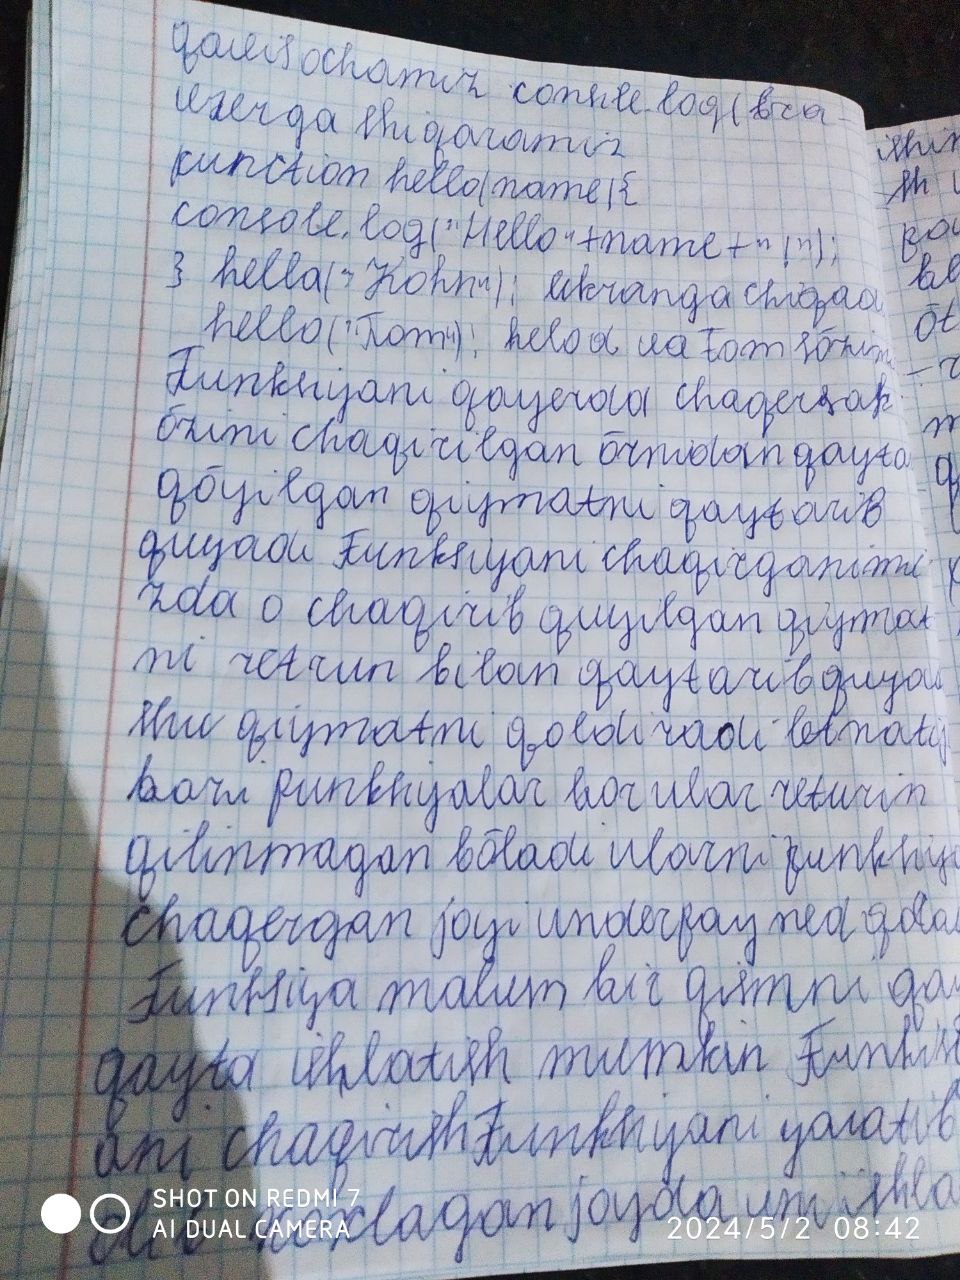 qavis ochamiz console.log(bra-
uzerga shiqaramiz
function hello(name){
console.log("Hello"+name+"!");
} hello("John"); ekranga chiqadi
hello("Tom"); hello va Tom sözini
Funkshyani qayerda chaqersak
özini chaqirilgan örnidan qayta
qöyilgan qiymatni qaytarib
quyadi Funksiyani chaqirganimi
zda o chaqirib quyilgan qiymat
ni retrun bilan qaytarib quyad
shu qiymatni qoldiradi
barı funkshyalar bor ular returin
qilinmagan böladi ularni funkshiya
chaqergan joyi underfayned
Funksiya malum bir qismni qay
qayta ishlatish mumkin Funkshi
ani chaqirish Funkshiyani yaratib
olib hoxlagan joyda uni ishla
ishin
sh
öt
SHOT ON REDMI 7
AI DUAL CAMERA
2024/5/2 08:42